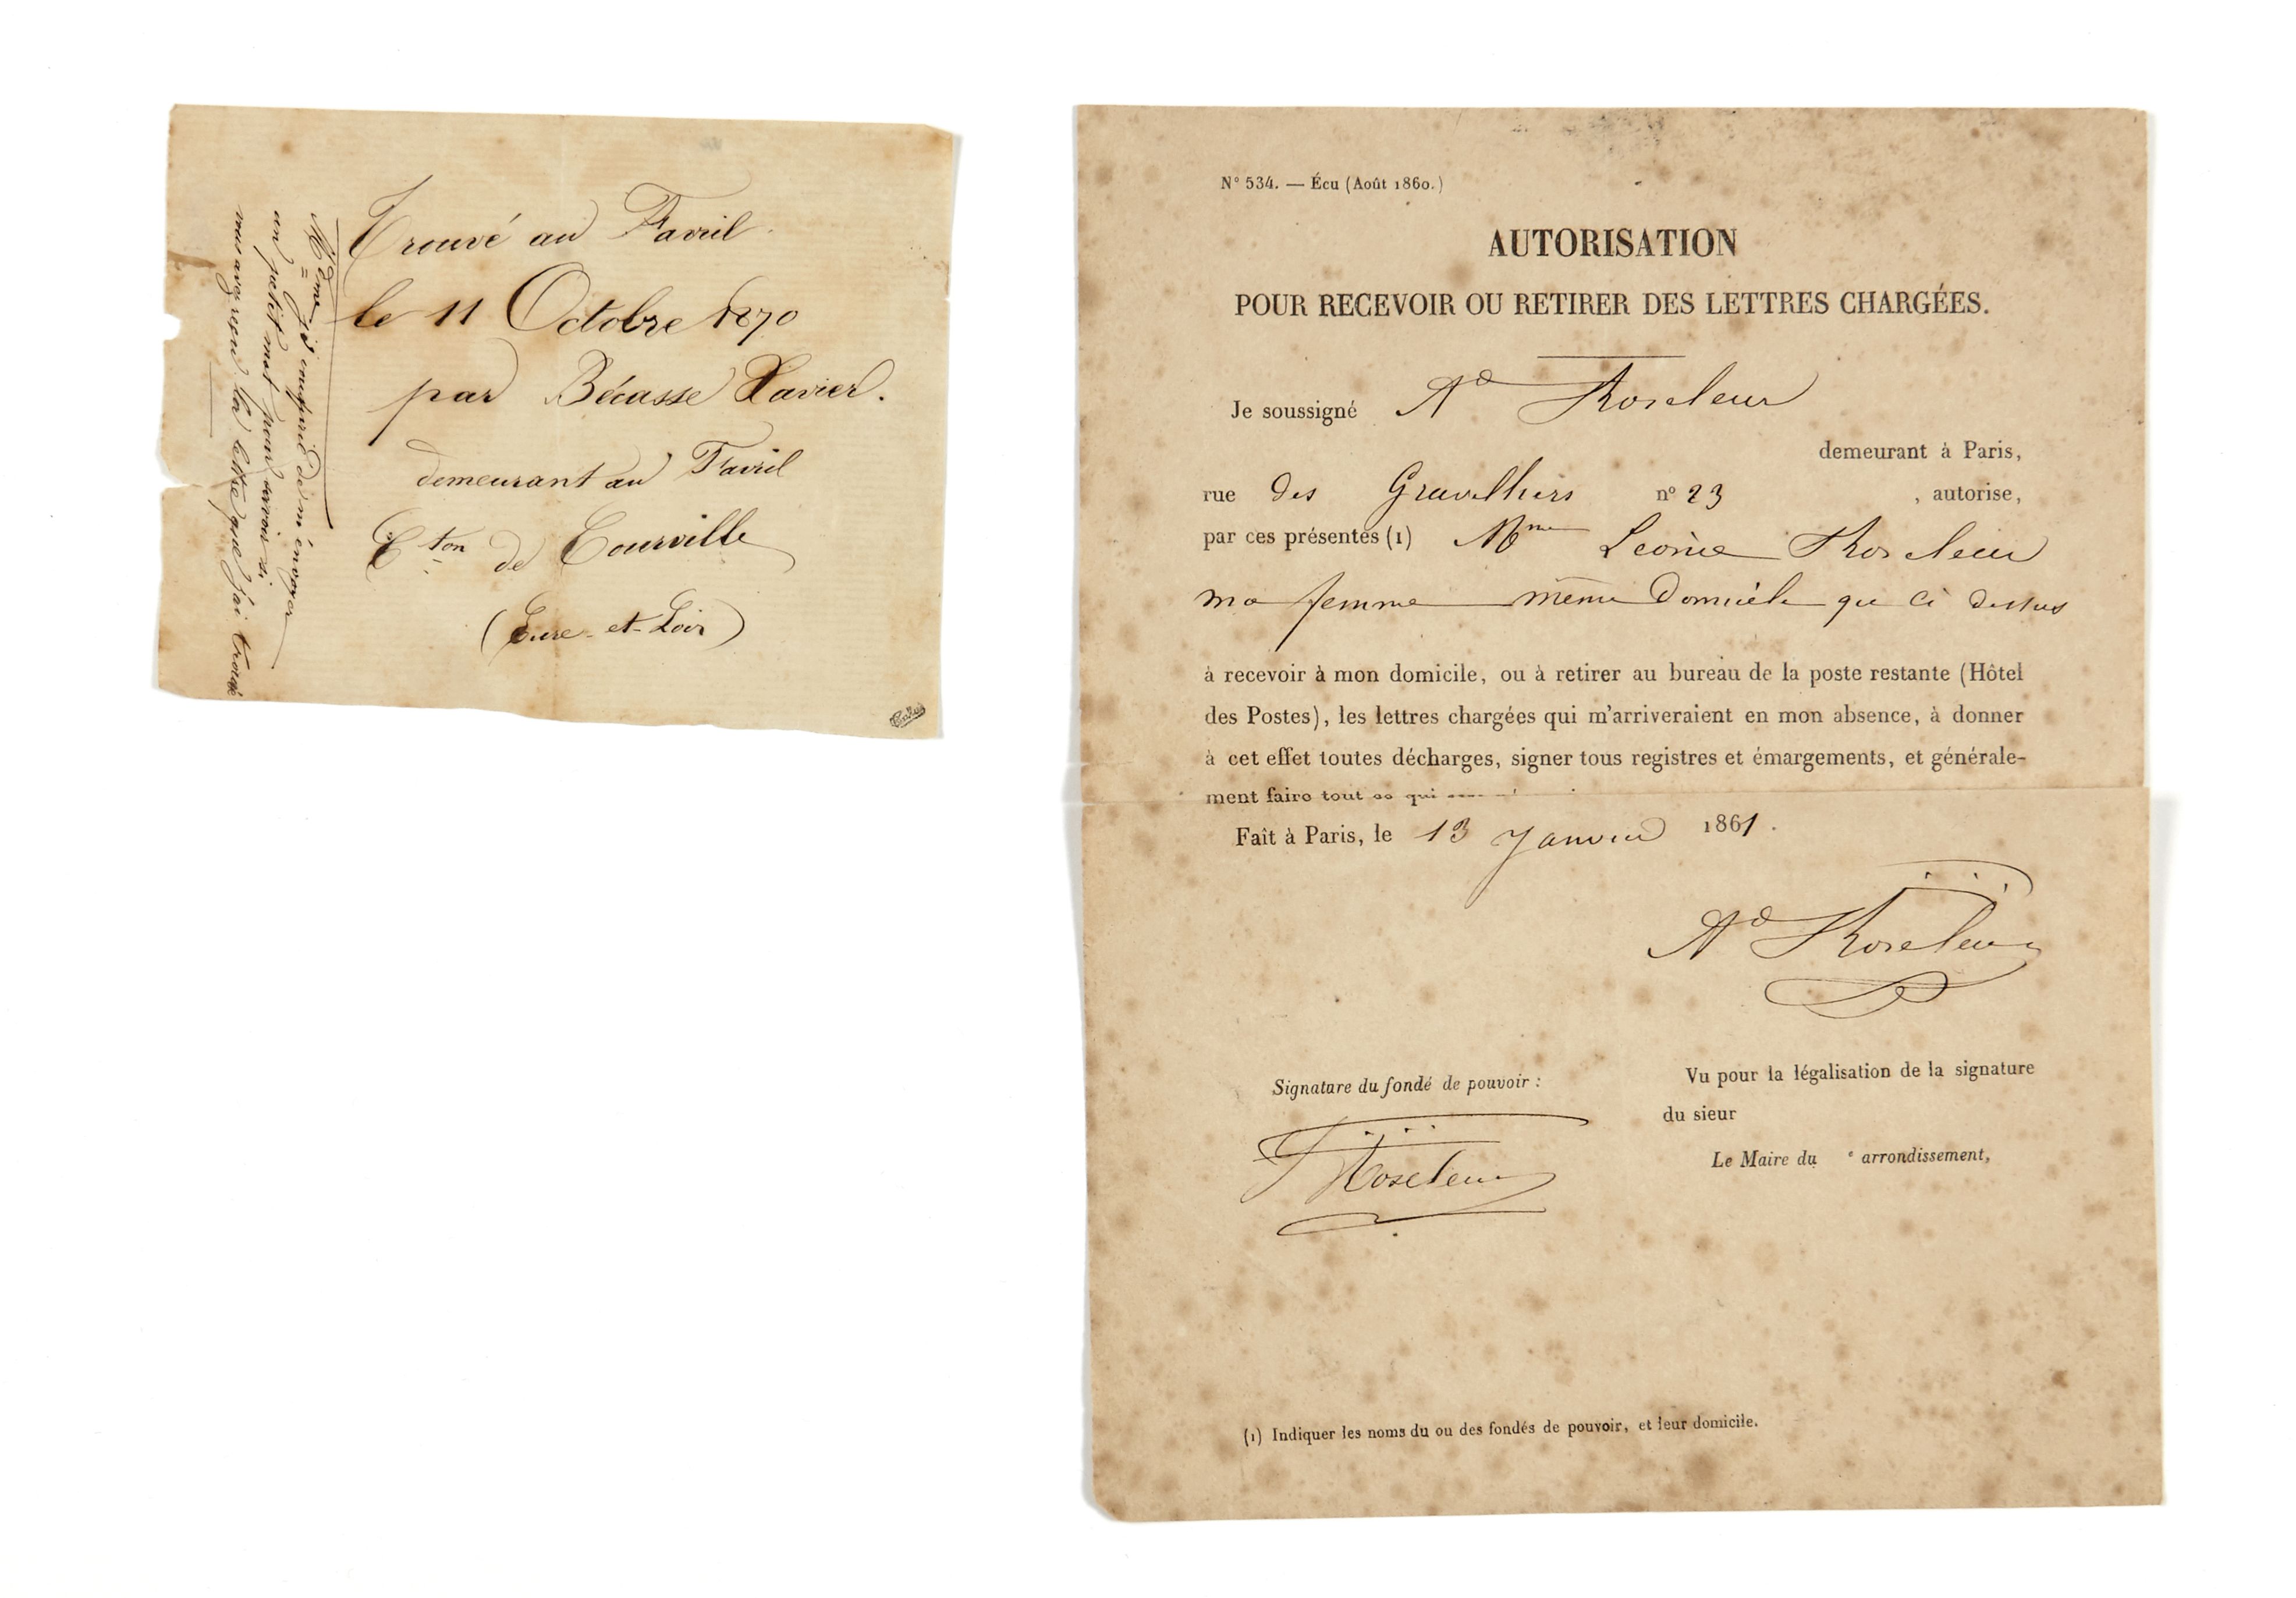 Trouvé au Favril
le 11 Octobre 1870
par Bécasse Xavier.
demeurant au Favril
C^ton de Courville
(Eure-et-Loir)
je d'm'envoyer
un petit mot pour savoir si
vous avez reçu la lettre que j'ai trouvé
Calves
N° 534. — Écu (Août 1860.)
AUTORISATION
POUR RECEVOIR OU RETIRER DES LETTRES CHARGÉES.
Je soussigné A^d Roseleur
demeurant à Paris,
rue des Gravilliers n° 23 , autorise,
par ces présentes (1) M^me Leonie Roseleur
ma femme même domicile que ci dessus
à recevoir à mon domicile, ou à retirer au bureau de la poste restante (Hôtel
des Postes), les lettres chargées qui m'arriveraient en mon absence, à donner
à cet effet toutes décharges, signer tous registres et émargements, et générale-
ment faire tout ce qui
Fait à Paris, le 13 Janvier 1861.
A^d Roseleur
Signature du fondé de pouvoir :
Roseleur
Vu pour la légalisation de la signature
du sieur
Le Maire du e arrondissement,
(1) Indiquer les noms du ou des fondés de pouvoir, et leur domicile.